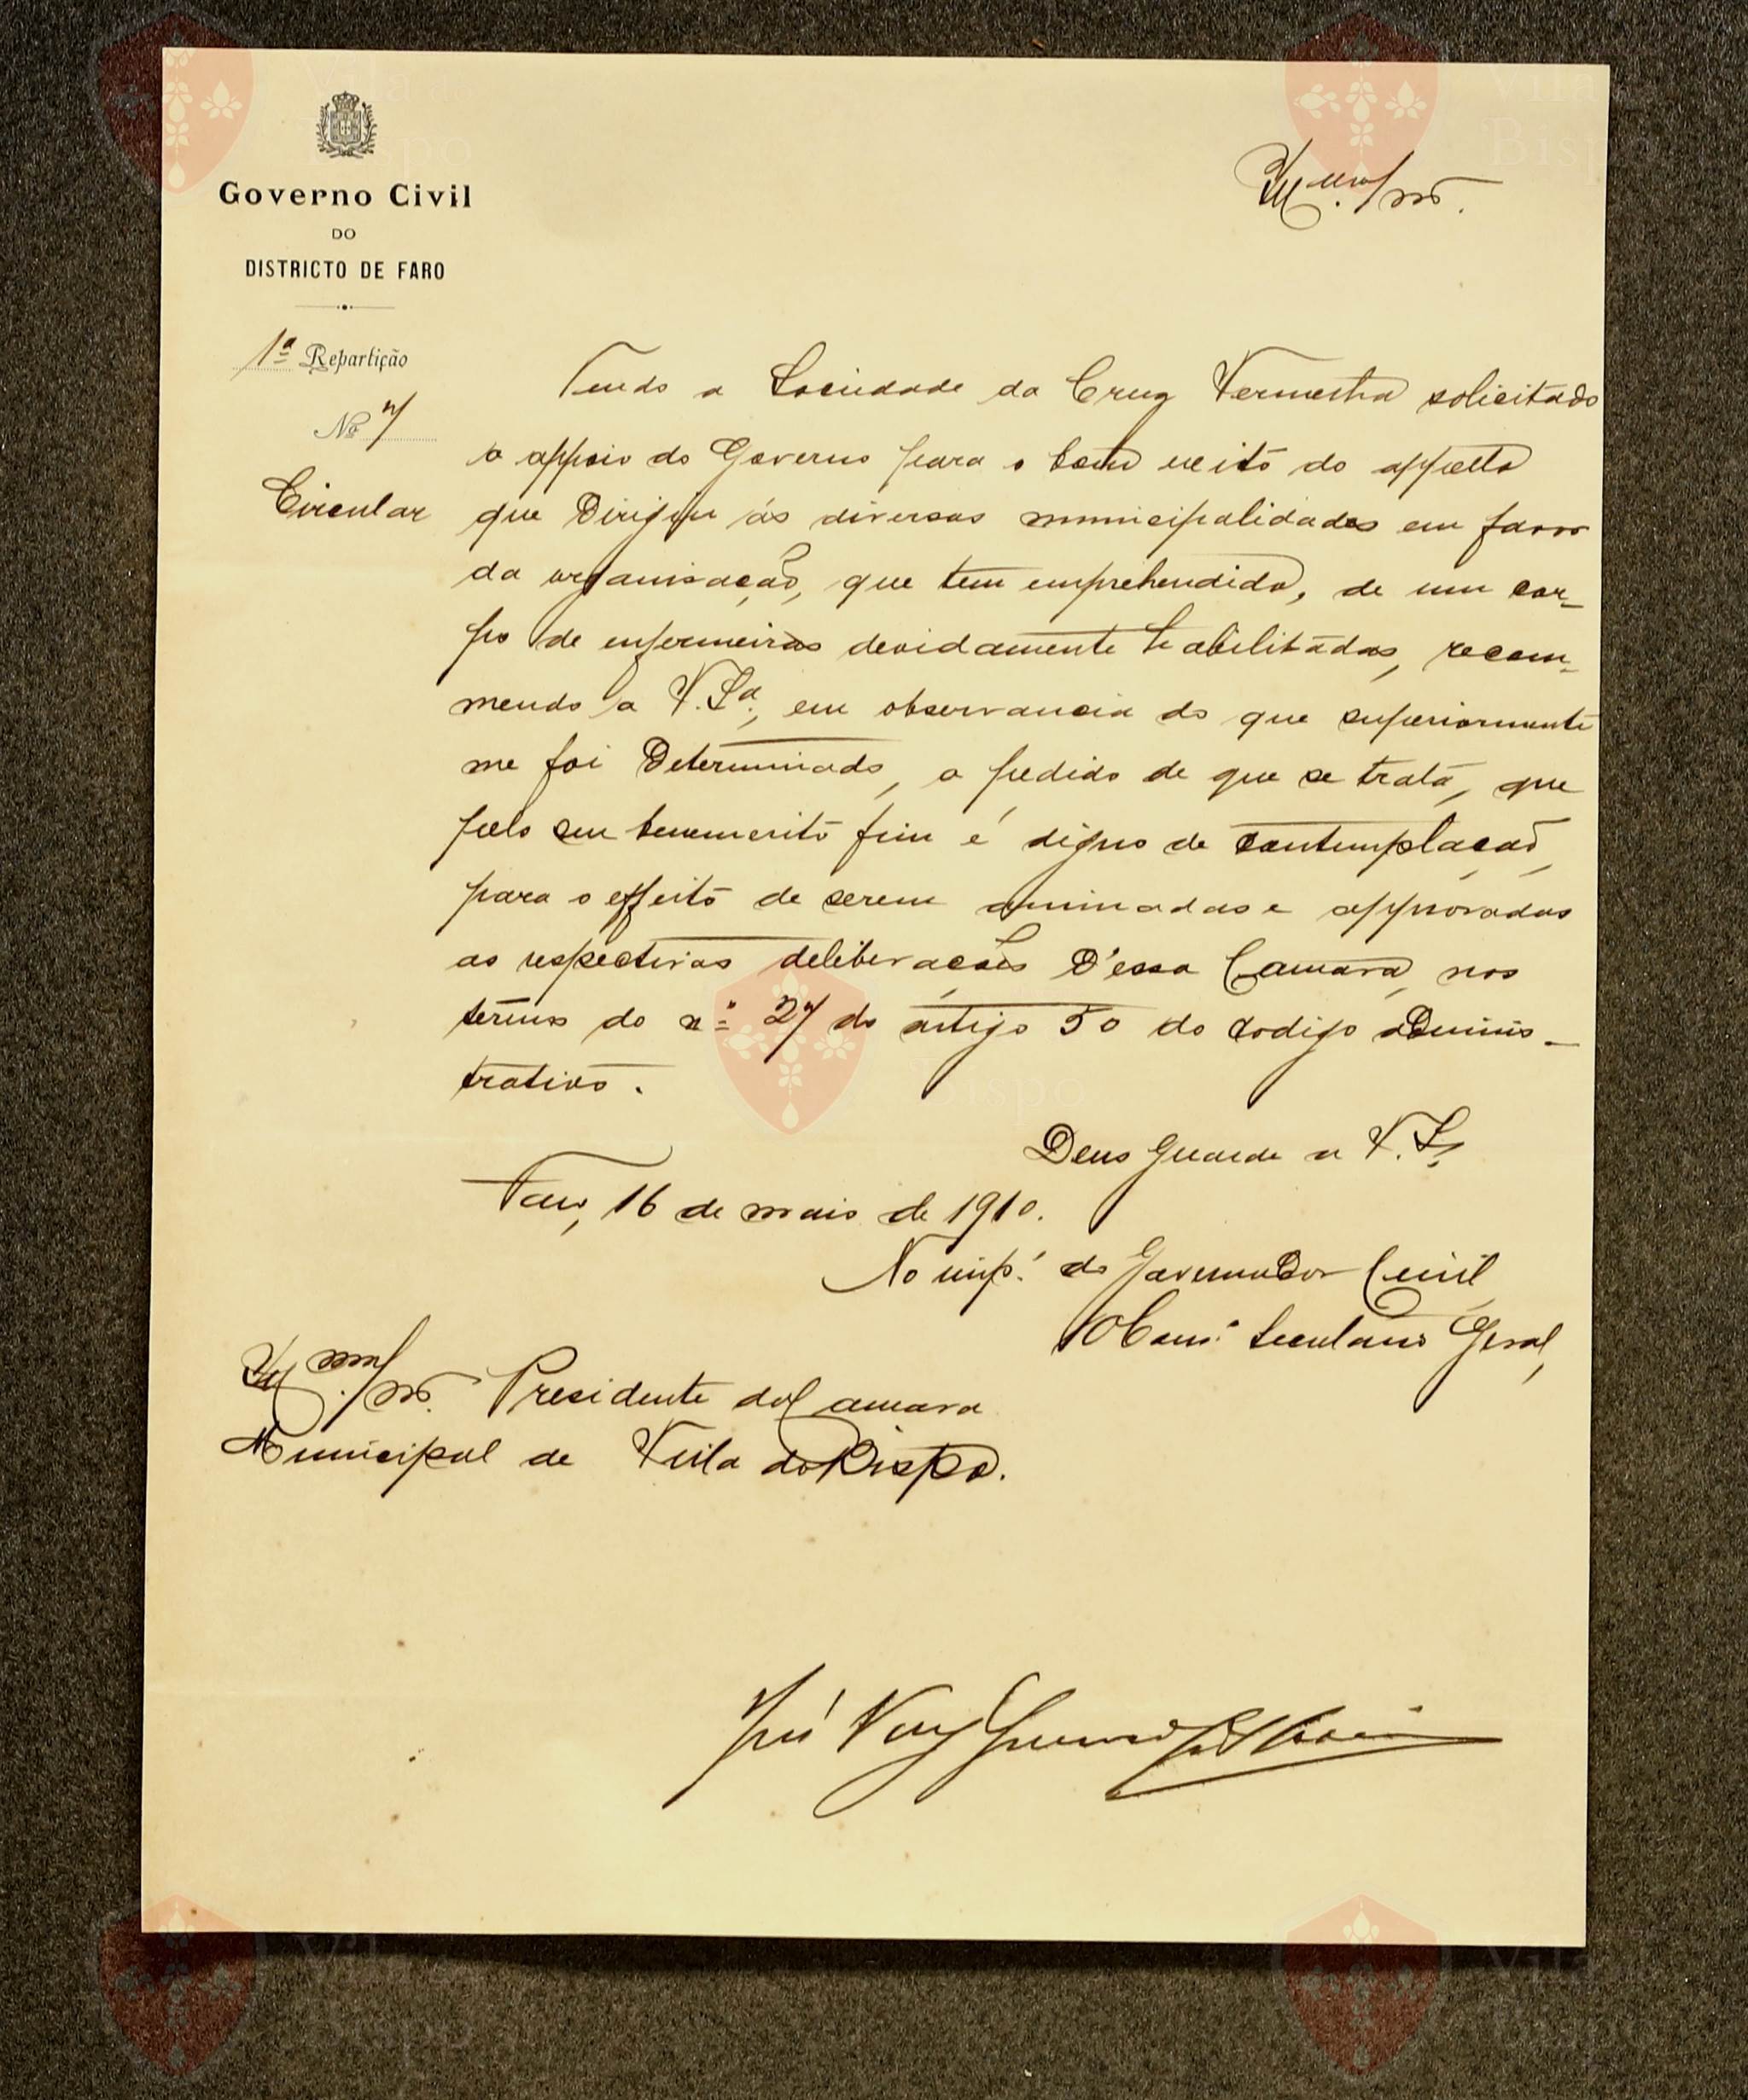 Governo Civil
DO
DISTRICTO DE FARO
1ª Repartição
Nº 7
Circular
Illmo. Snr.
Tendo a Sociedade da Cruz Vermelha solicitado
o appoio do Governo para o bom exito do appello
que dirigiu ás diversas municipalidades em favor
da organisação, que tem emprehendido, de um cor-
po de enfermeiras devidamente habilitadas, recom-
mendo a V. Sª., em observancia do que superiormente
me foi determinado, o pedido de que se trata, que
pelo seu benemerito fim é digno de contemplação,
para o effeito de serem animadas e approvadas
as respectivas deliberações d'essa Camara, nos
termos do nº 27 do artigo 50 do codigo adminis-
trativo.
Deus Guarde a V. Sª.
Faro, 16 de maio de 1910.
No impº. do Governador Civil
O Secretario Geral,
Illmo. Snr. Presidente da Camara
Municipal de Villa do Bispo.
José Vaz
Vila do
Bispo